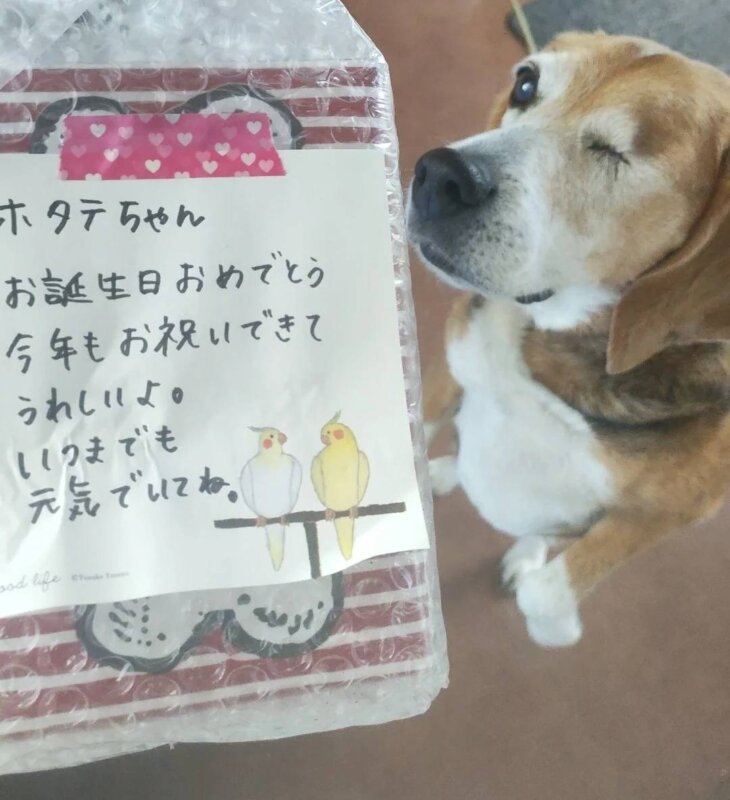 ホタテちゃん
お誕生日おめでとう
今年もお祝いできて
うれしいよ。
いつまでも
元気でいてね。
ood life